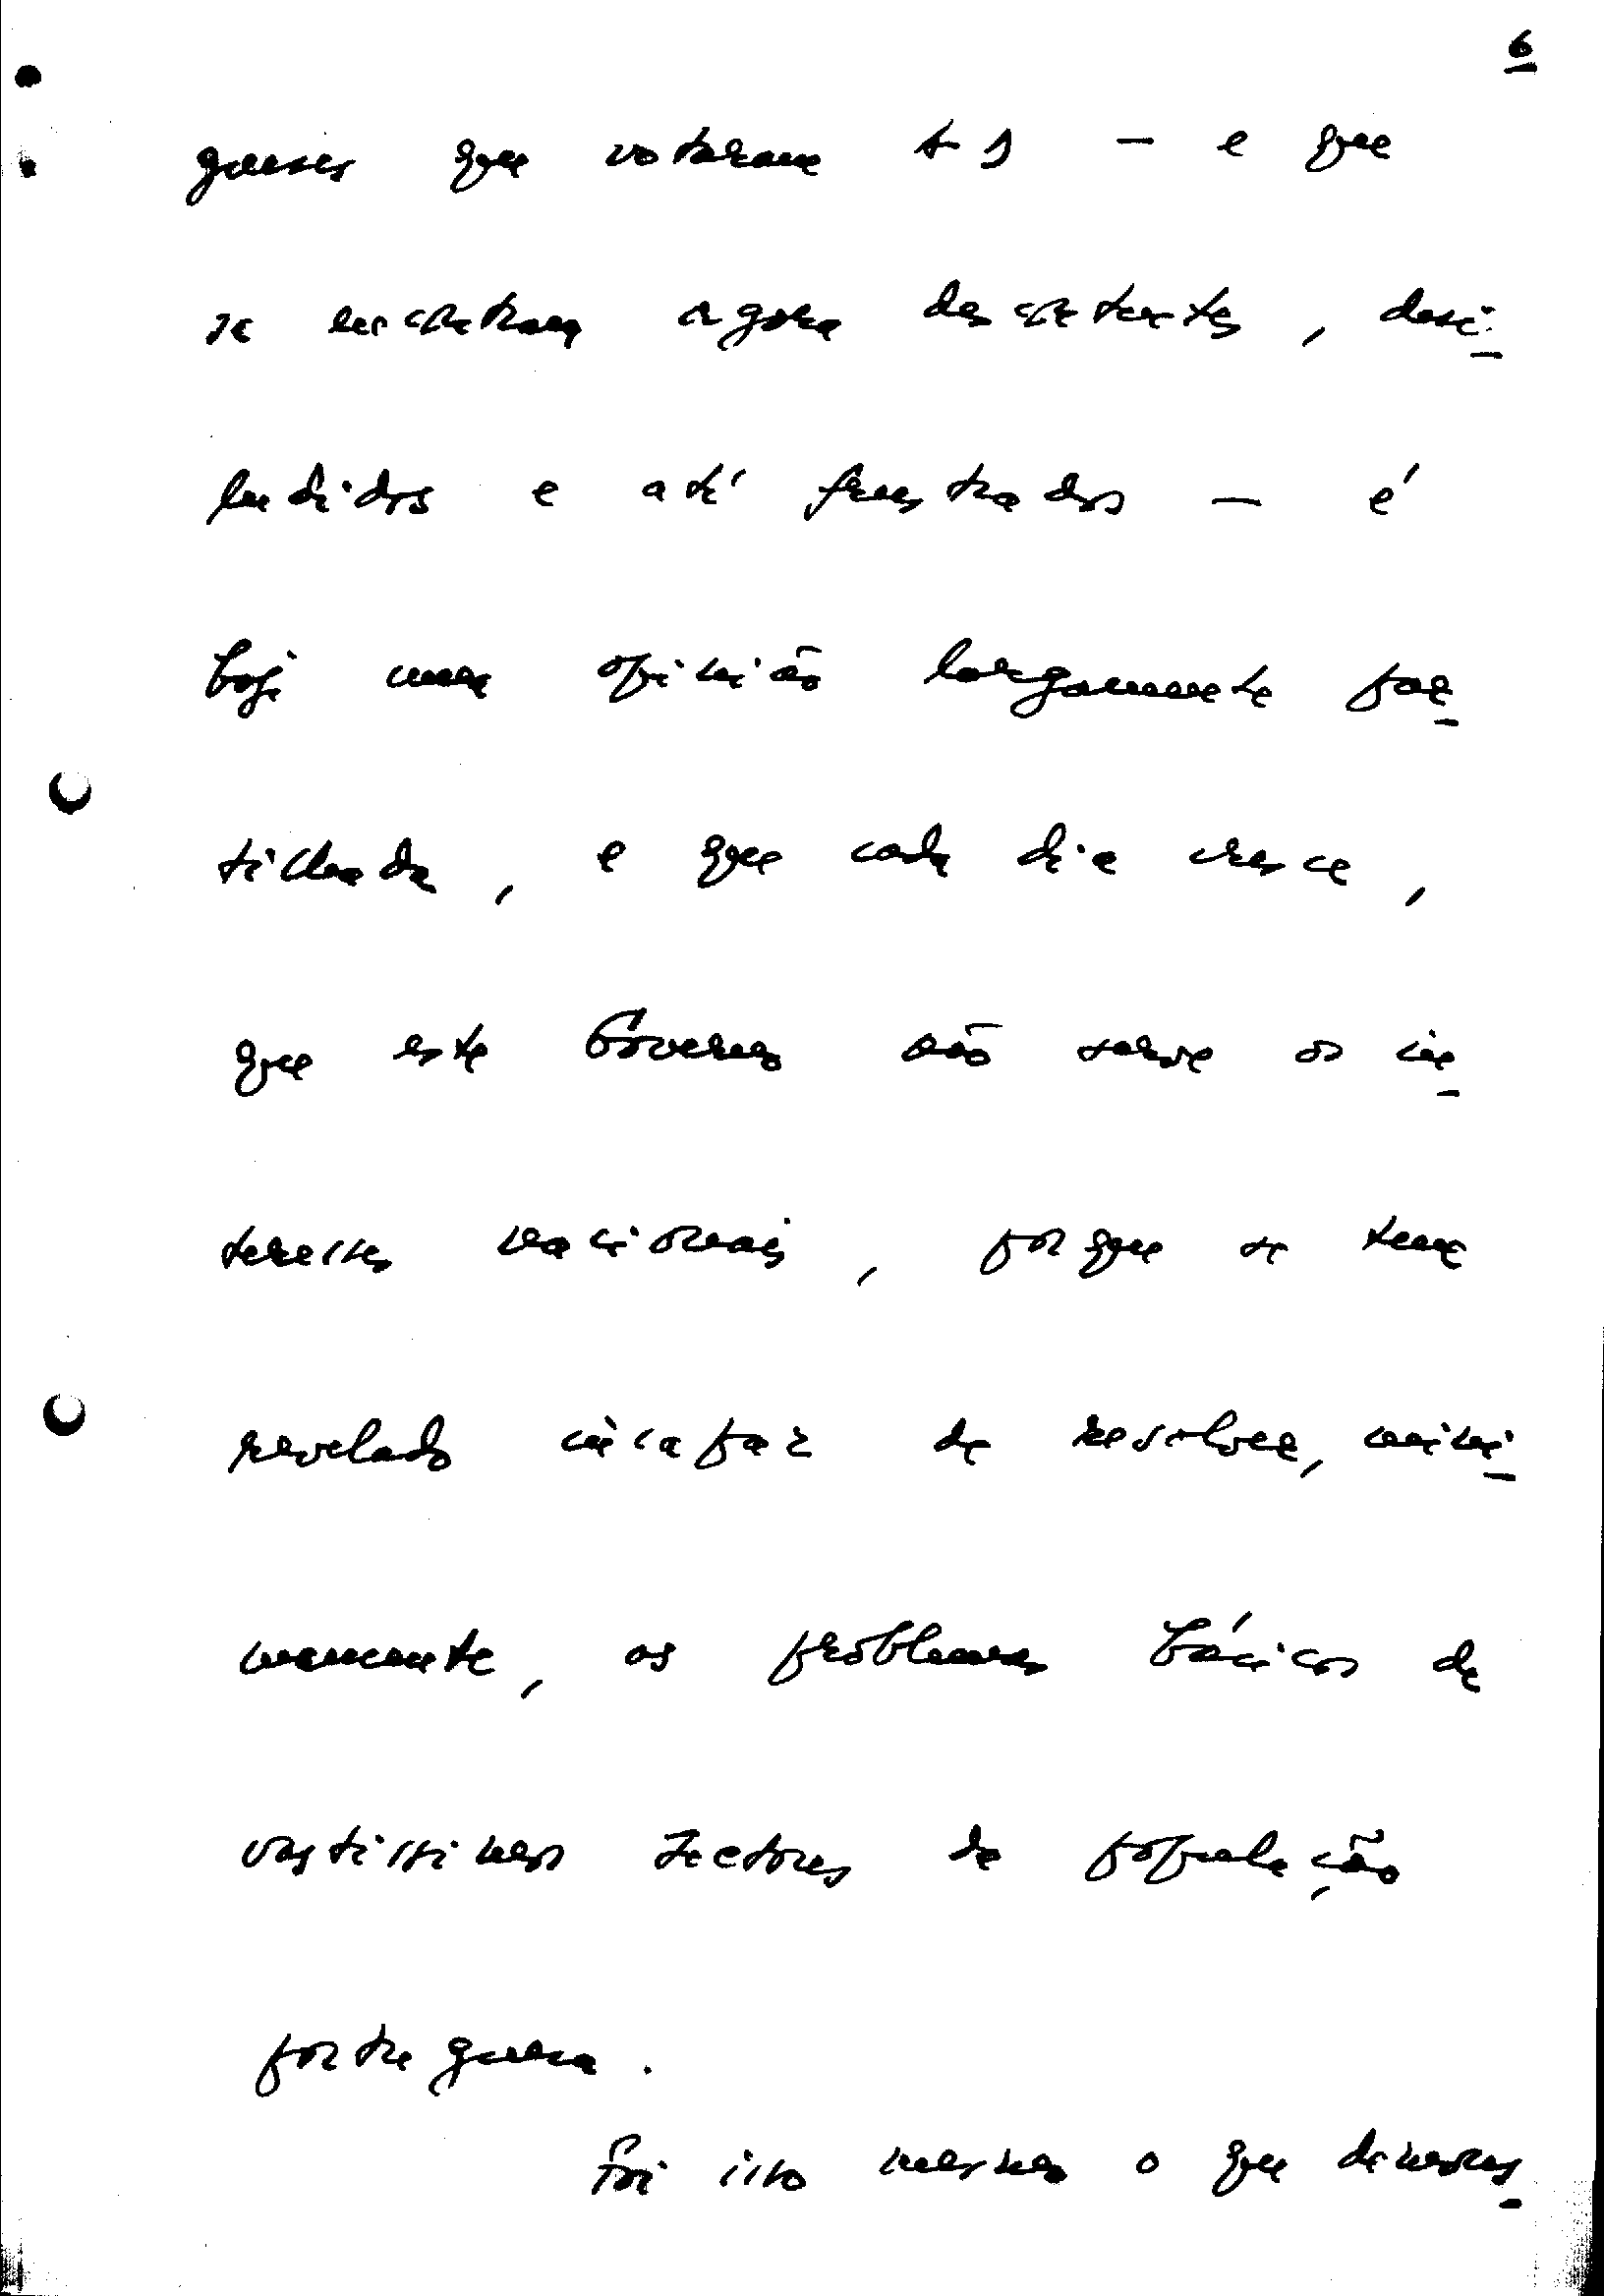 6
gueses que votaram AD — e que
se encontram agora descontentes, desi-
ludidos e até frustrados — é
hoje uma opinião largamente par-
tilhada, e que cada dia cresce,
que este Governo não serve os in-
teresses nacionais, porque se tem
revelado incapaz de resolver, mini-
mamente, os problemas básicos de
vastíssimos sectores da população
portuguesa.
Foi isto mesmo o que demons-